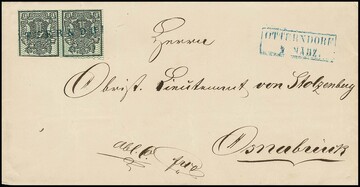 OTTERNDORF
3 MÄRZ.
Herrn
Obrist Lieutenant von Stolzenberg
Osnabrück